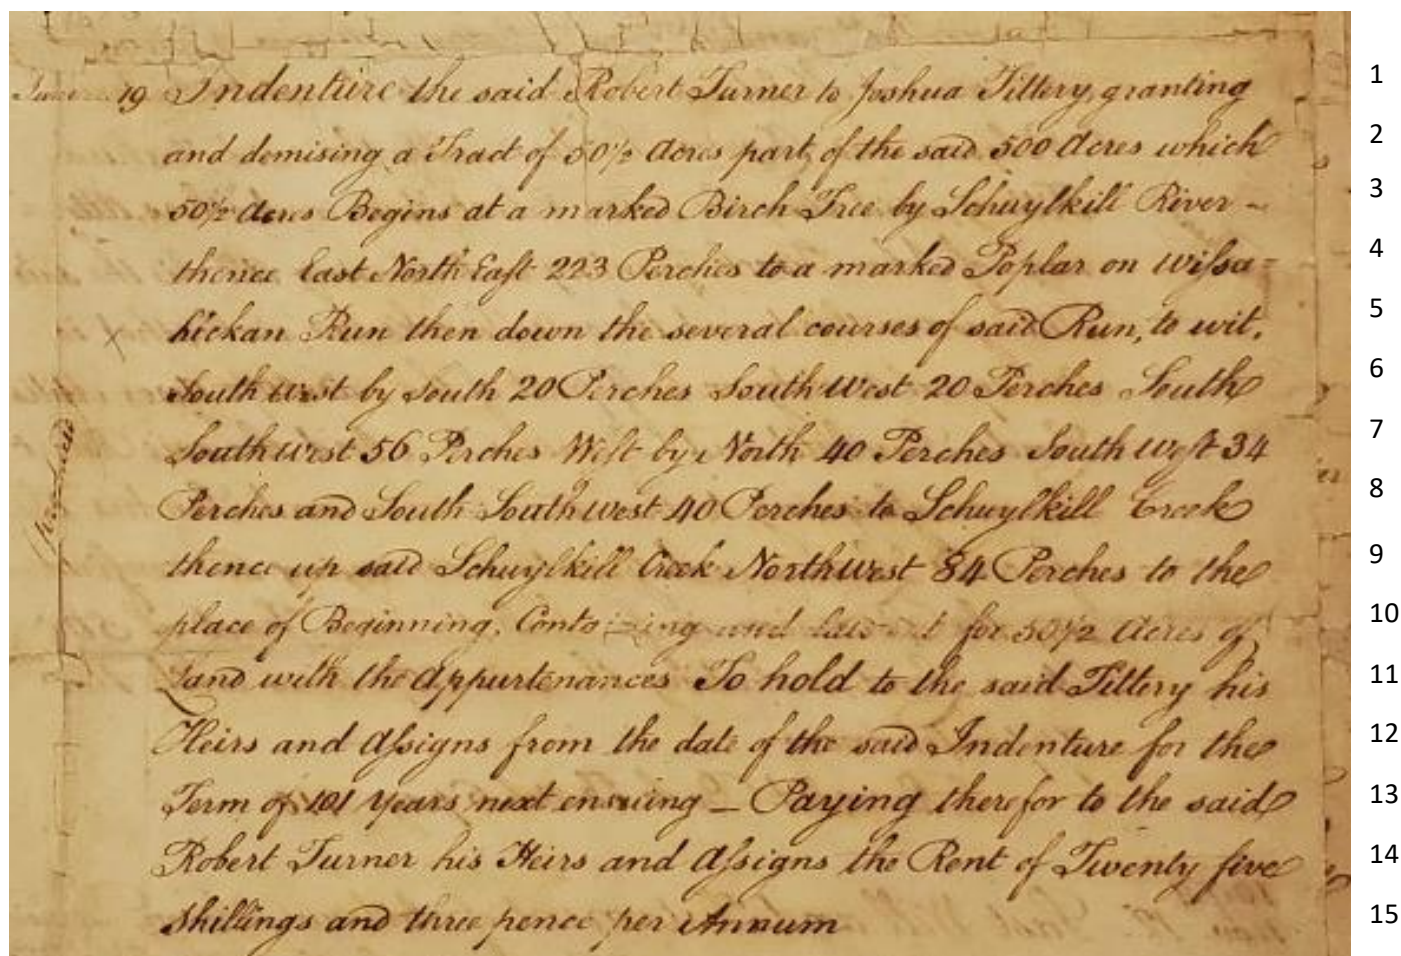 19 Indenture the said Robert Turner to Joshua Tittery, granting 1
and demising a Tract of 50½ Acres part of the said 500 Acres which 2
50½ Acres Begins at a marked Birch Tree by Schuylkill River - 3
thence East North East 223 Perches to a marked Poplar on Wissa= 4
hickan Run then down the several courses of said Run, to wit, 5
South West by South 20 Perches South West 20 Perches South 6
South West 56 Perches West by North 40 Perches South West 34 7
Perches and South South West 40 Perches to Schuylkill Creek 8
thence up said Schuylkill Creek North West 84 Perches to the 9
place of Beginning, Containing and laid out for 50½ Acres of 10
Land with the Appurtenances To hold to the said Tittery his 11
Heirs and Assigns from the date of the said Indenture for the 12
Term of 101 Years next ensuing _ Paying therefor to the said 13
Robert Turner his Heirs and Assigns the Rent of Twenty five 14
Shillings and three pence per Annum 15